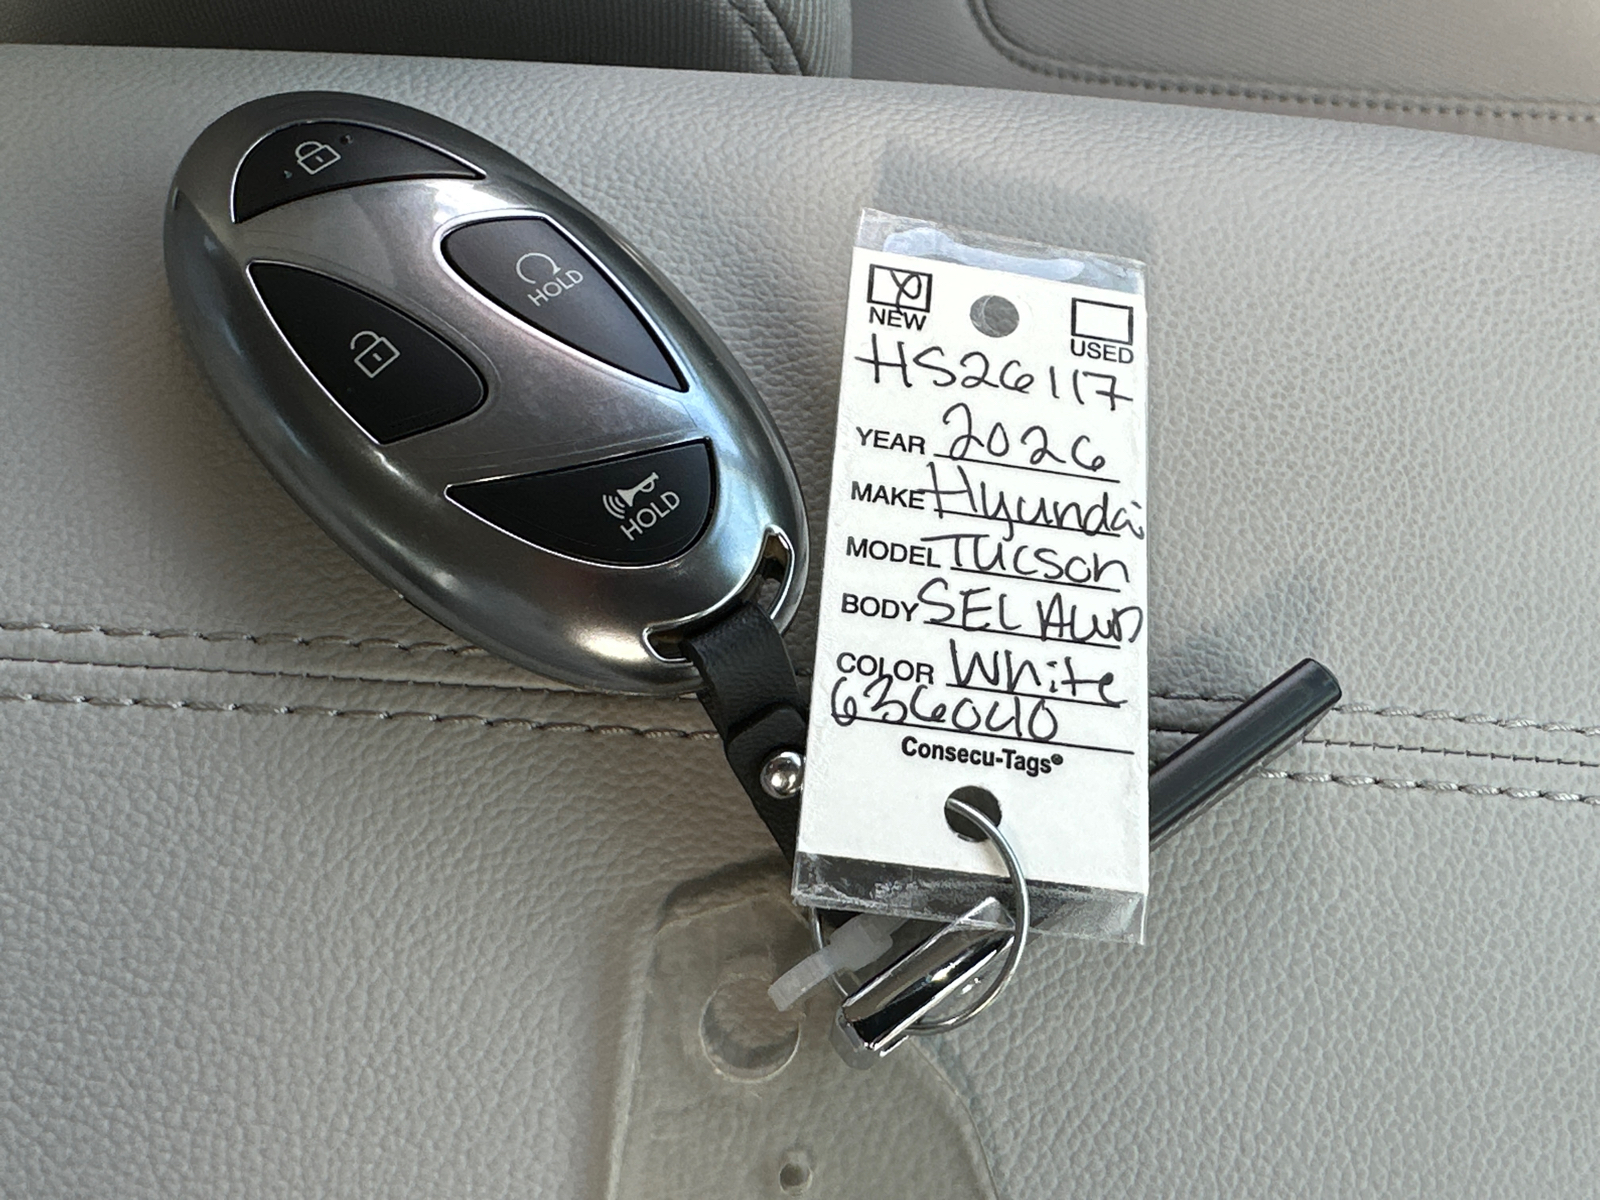 HOLD
HOLD
NEW
USED
HS26117
YEAR 2026
MAKE Hyundai
MODEL Tucson
BODY SEL AWD
COLOR White
636040
Consecu-Tags®